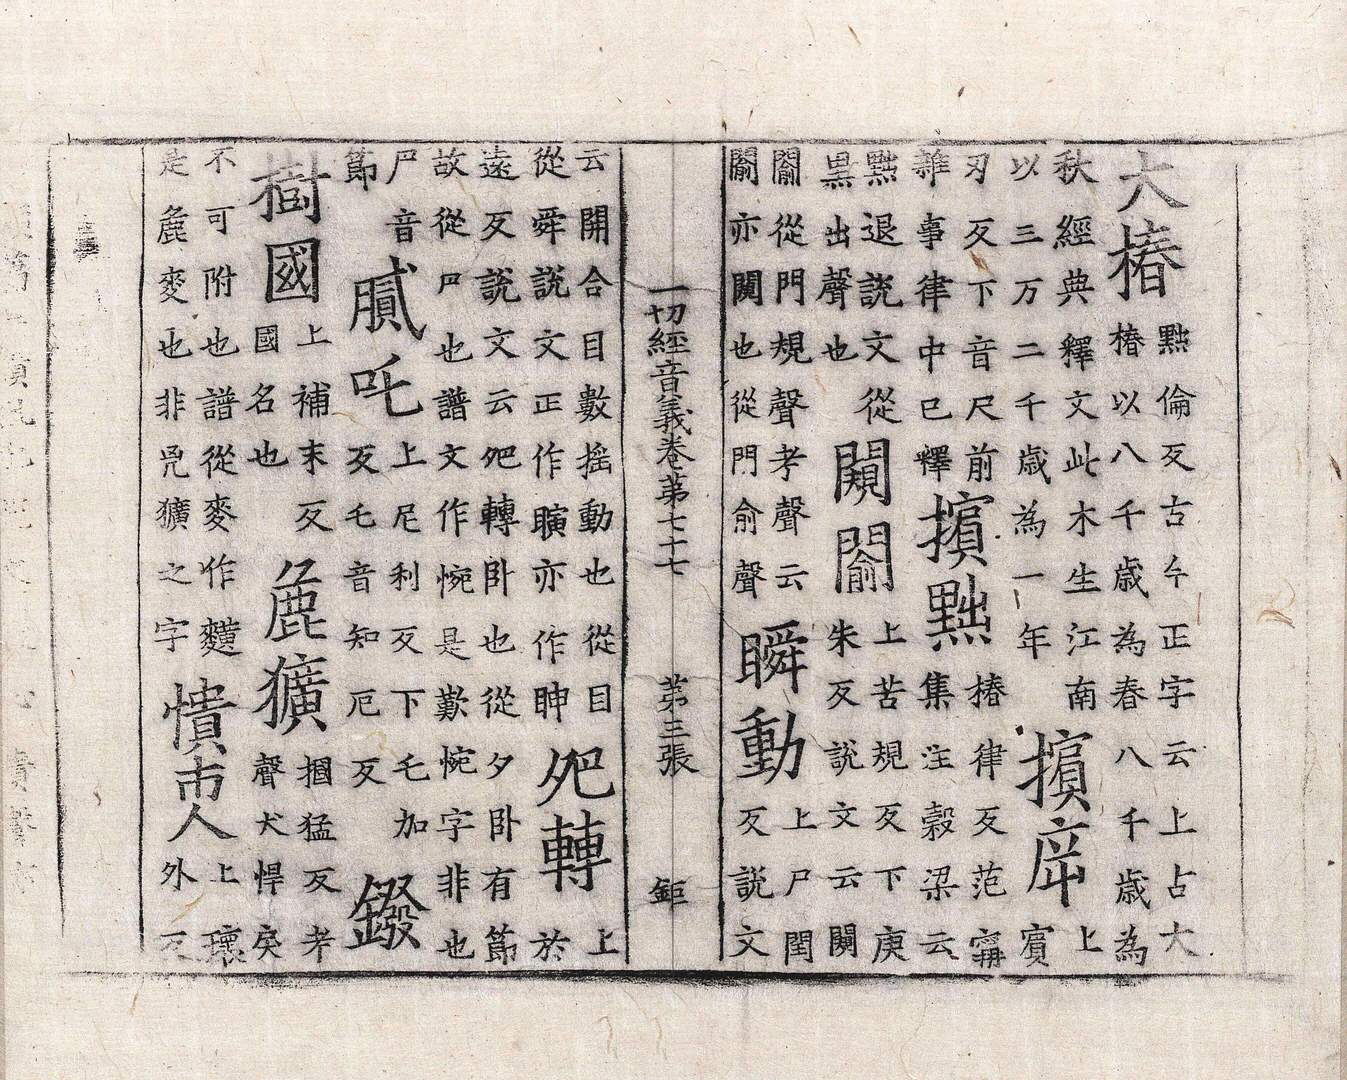 大椿 㸃倫反古今正字云上占大
椿以八千歳為春八千歳為
秋經典釋文此木生江南
以三万二千歳為一年 擯㡿 上
賓
刃反下音尺前
雜事律中已釋 擯黜 椿律反范甯
集注穀梁云
黜退説文從
黒出聲也 闚𨵦 上苦規反下庾
朱反説文云闚
𨵦從門規聲考聲云
𨵦亦闚也從門俞聲 瞬動 上尸閏
反説文
一切經音義卷第七十七 第三張 鉅
云開合目數揺動也從目
從舜説文正作瞚亦作眒 夗轉 上
於
遠反説文云夗轉卧也從夕卧有節
故從尸也譜文作惋是歎惋字非也
尸音
節 膩吒 上尼利反下乇加
反乇音知厄反 鏺
樹國 上補末反
國名也 麁獷 掴猛反考
聲犬悍矣
不可附也譜從麥作䵃
是麁麥也非麁獷之字 憒市人 上瓌
外反